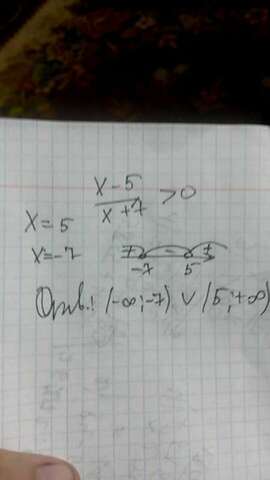 x-5
x+7 >0
x=5
x=-7
+ - +
-7 5
Ответ: (-∞;-7) ∪ (5;+∞)